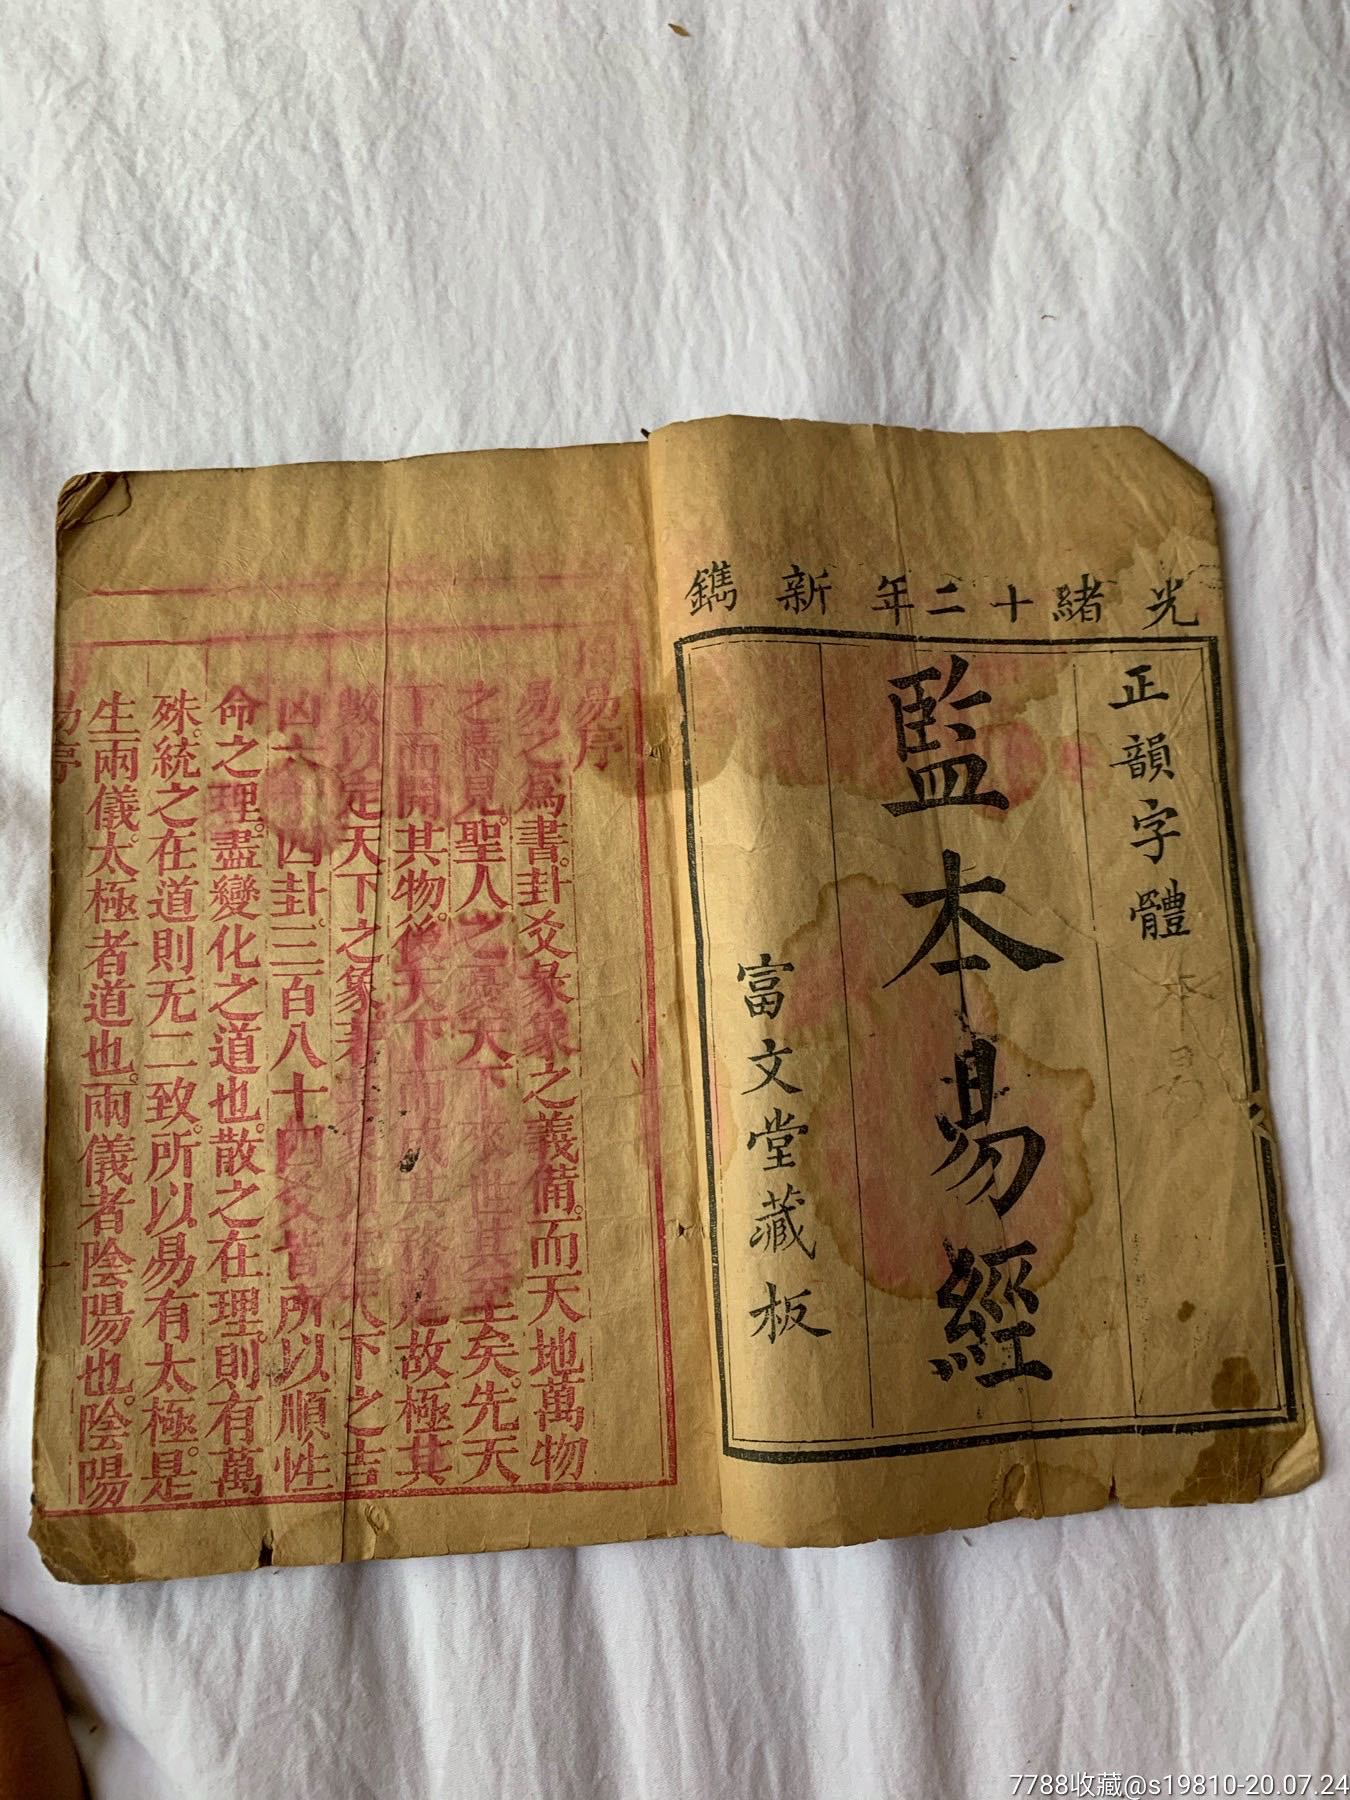 光緒十二年新鐫
正韻字體
監本易經
富文堂藏板
本易
易序
易之爲書。卦爻彖象之義備。而天地萬物
之情見。聖人之憂天下來世其至矣。先天
下而開其物。後天下而成其務是故極其
數以定天下之象著其象以定天下之吉
凶六十四卦。三百八十四爻皆所以順性
命之理。盡變化之道也。散之在理。則有萬
殊。統之在道則无二致。所以易有太極。是
生兩儀。太極者道也。兩儀者陰陽也。陰陽
易序
一
7788收藏@s19810-20.07.24